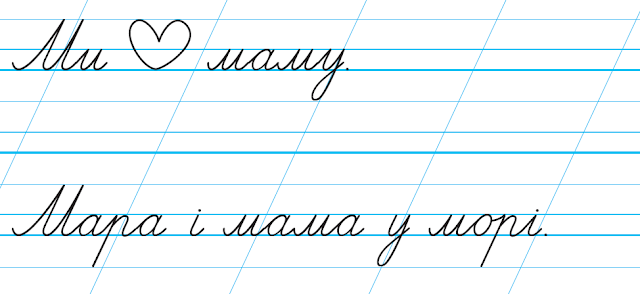 Ми ♡ маму.
Мара і мама у морі.